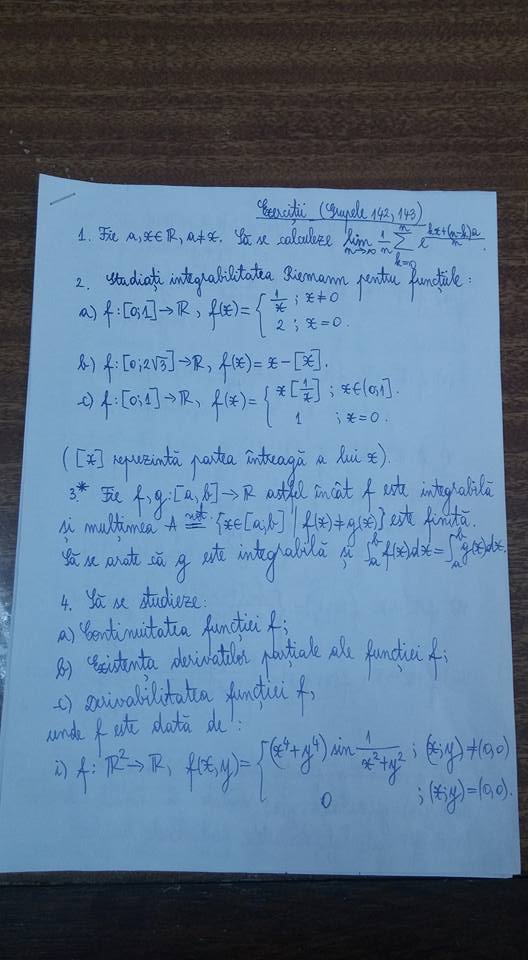 Exerciții (Grupele 142, 143)
1. Fie a, x∈ℝ, a≠x. Să se calculeze lim_{n→∞} 1/n ∑_{k=0}^{n} e^{(kx+(n-k)a)/n}.
2. Studiați integrabilitatea Riemann pentru funcțiile:
a) f:[0;1]→ℝ, f(x)= { 1/x ; x≠0
2 ; x=0.
b) f:[0;2√3]→ℝ, f(x)=x-[x].
c) f:[0;1]→ℝ, f(x)= { x[1/x] ; x∈(0;1].
1 ; x=0.
([x] reprezintă partea întreagă a lui x).
3.* Fie f,g:[a,b]→ℝ astfel încât f este integrabilă
și mulțimea A =^{not} {x∈[a;b] | f(x)≠g(x)} este finită.
Să se arate că g este integrabilă și ∫_a^b f(x)dx=∫_a^b g(x)dx.
4. Să se studieze:
a) Continuitatea funcției f;
b) Existența derivatelor parțiale ale funcției f;
c) Derivabilitatea funcției f,
unde f este dată de:
i) f:ℝ²→ℝ, f(x,y)= { (x⁴+y⁴) sin 1/(x²+y²) ; (x;y)≠(0,0)
0 ; (x;y)=(0,0).